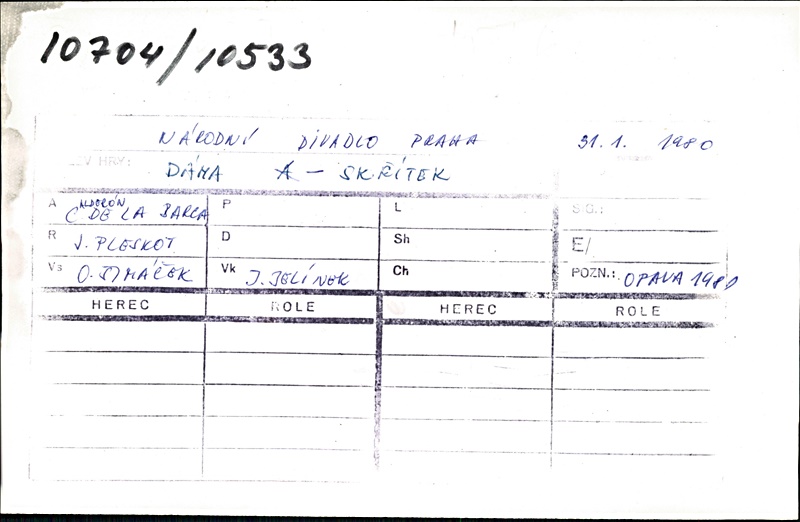 10704/10533
NÁRODNÍ DIVADLO PRAHA 31.1. 1980
EV HRY: DÁMA A - SKŘÍTEK
A CALDERÓN DE LA BARCA P L S G.:
R J. PLESKOT D Sh E/
Vs O. ŠIMÁČEK Vk J. JELÍNEK Ch POZN.: OPAVA 1980
HEREC ROLE HEREC ROLE